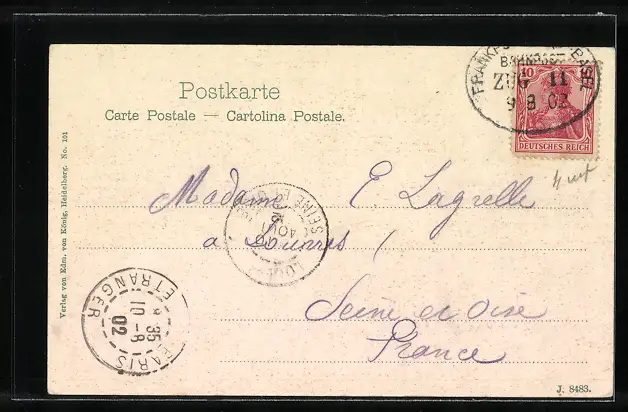 Postkarte
Carte Postale — Cartolina Postale.
BAHNPOST
ZUG 11
9 8 02
10
DEUTSCHES REICH
Madame E. Lagrelle
a
Seine et Oise
France
PARIS
ETRANGER
35
10-8
02
SEINE
AOUT
02
Verlag von Edm. von König, Heidelberg. No. 101
J. 8483.